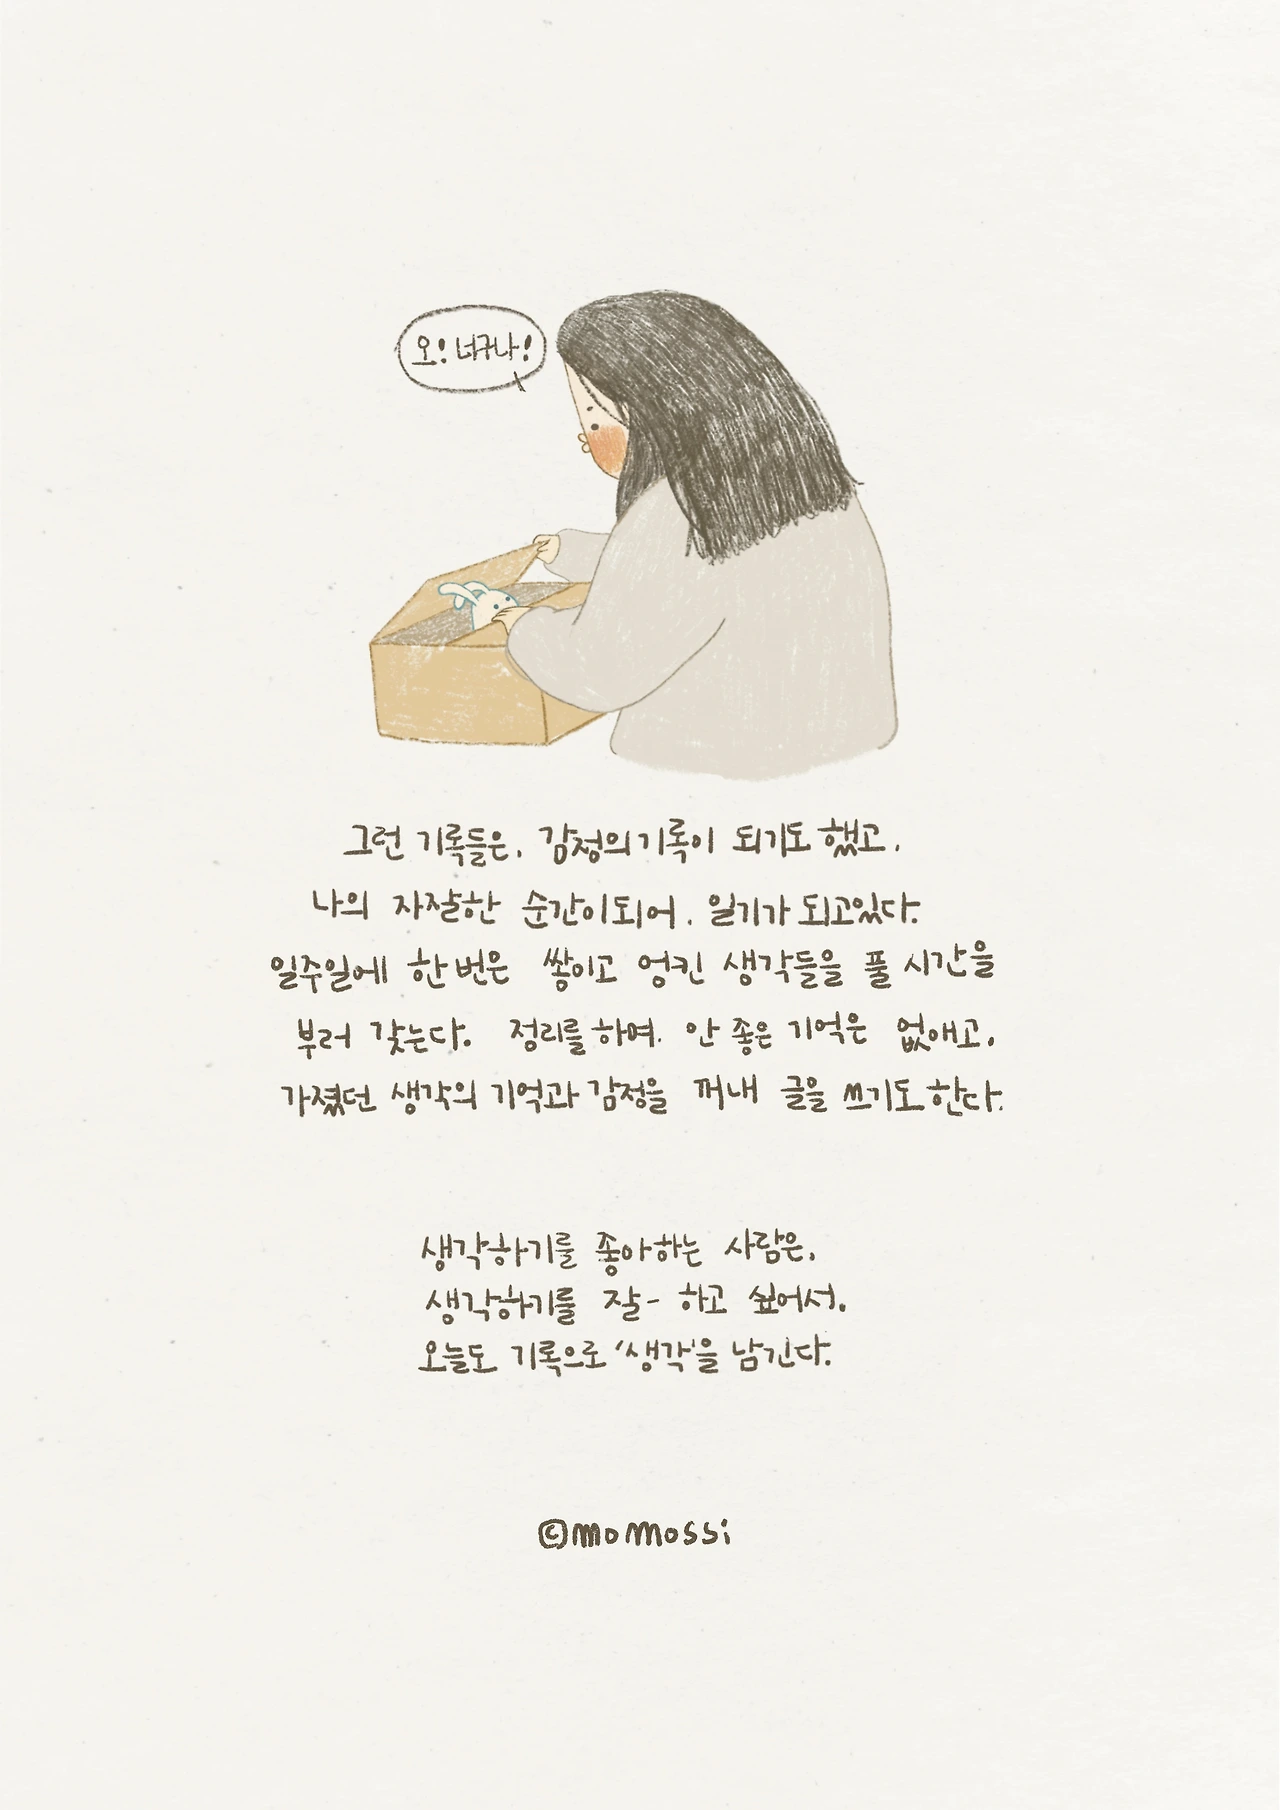 오! 너구나!
그런 기록들은, 감정의 기록이 되기도 했고,
나의 자잘한 순간이 되어, 일기가 되고있다.
일주일에 한 번은 쌓이고 엉킨 생각들을 풀 시간을
부러 갖는다. 정리를 하며, 안 좋은 기억은 없애고,
가졌던 생각의 기억과 감정을 꺼내 글을 쓰기도 한다.
생각하기를 좋아하는 사람은,
생각하기를 잘- 하고 싶어서,
오늘도 기록으로 '생각'을 남긴다.
©momossi